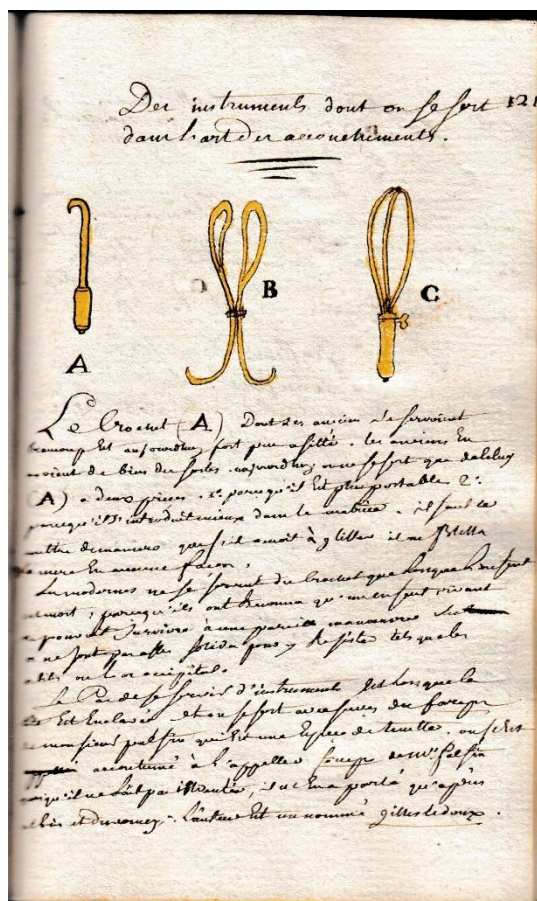 Des instruments dont on se sert 121
dans l'art des accouchements.
A B C
Le Crochet (A) Dont les ancien se servoient
beaucoup Est aujourdhuy fort peu usitté. les anciens En
avoient de bien des sortes. aujourdhuy on ne se sert que de celuy
(A) a deux pieces. 1° parcequ'il Est plus portable 2°
parcequ'il s'introduit mieux dans la matrice. il faut le
mettre de maniere que s'il venoit à glisser il ne Blessa
la mere En aucune facon.
Les modernes ne se servent du Crochet que lorsque l'enfant
est mort, parcequ'ils ont Reconnu qu'un enfant vivant
ne pouvoit survivre à une pareille manoeuvre
ne sont pas assés solides pour y Resister tels que les
ou l'os occipital.
Le Cas de se servir d'instrument Est lorsque la
Est Enclavée et on se sert avec succes du forceps
de monsieur qui Est une Espece de tenette. on s'est
accoutumé à l'appeller forceps de Mr
quoiqu'il ne l'ait pas inventée, il n'en a porté qu'après
et duverney. l'auteur Est un nommé gilles ledoux.